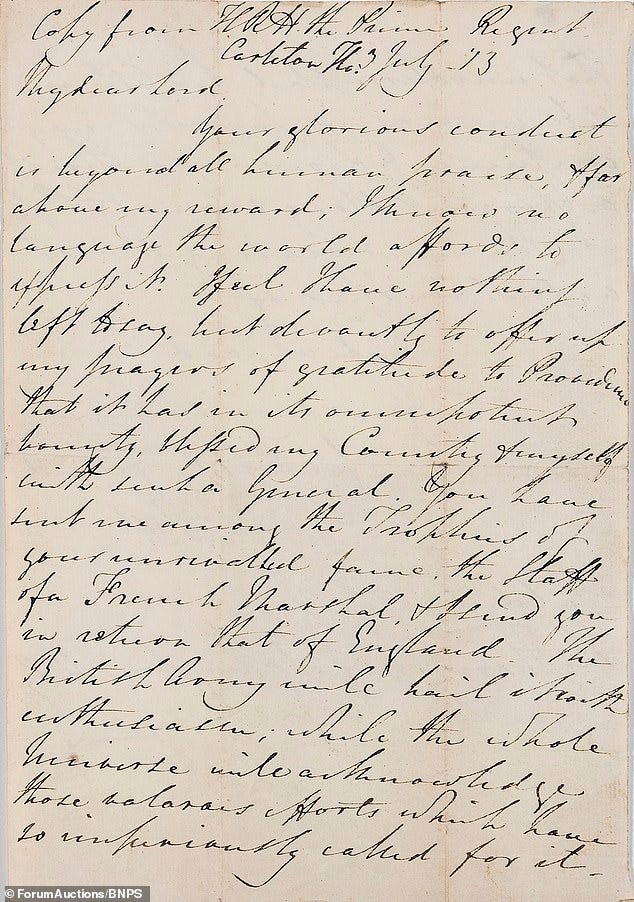 Copy from H R H. the Prince Regent
Carleton Ho: 3 July 13
My dear Lord
Your glorious conduct
is beyond all human praise, & far
above my reward; I know no
language the world affords to
express it. I feel I have nothing
left to say, but devoutly to offer up
my prayers of gratitude to Providence
that it has in its omnipotent
bounty, blessed my Country & myself
with such a General. You have
sent me among the Trophies of
your unrivalled fame. the Staff
of a French Marshal, & I send you
in return that of England. The
British Army will hail it with
enthusiasm; while the whole
Universe will acknowledge
those valorous efforts which have
so imperiously called for it.
© ForumAuctions/BNPS